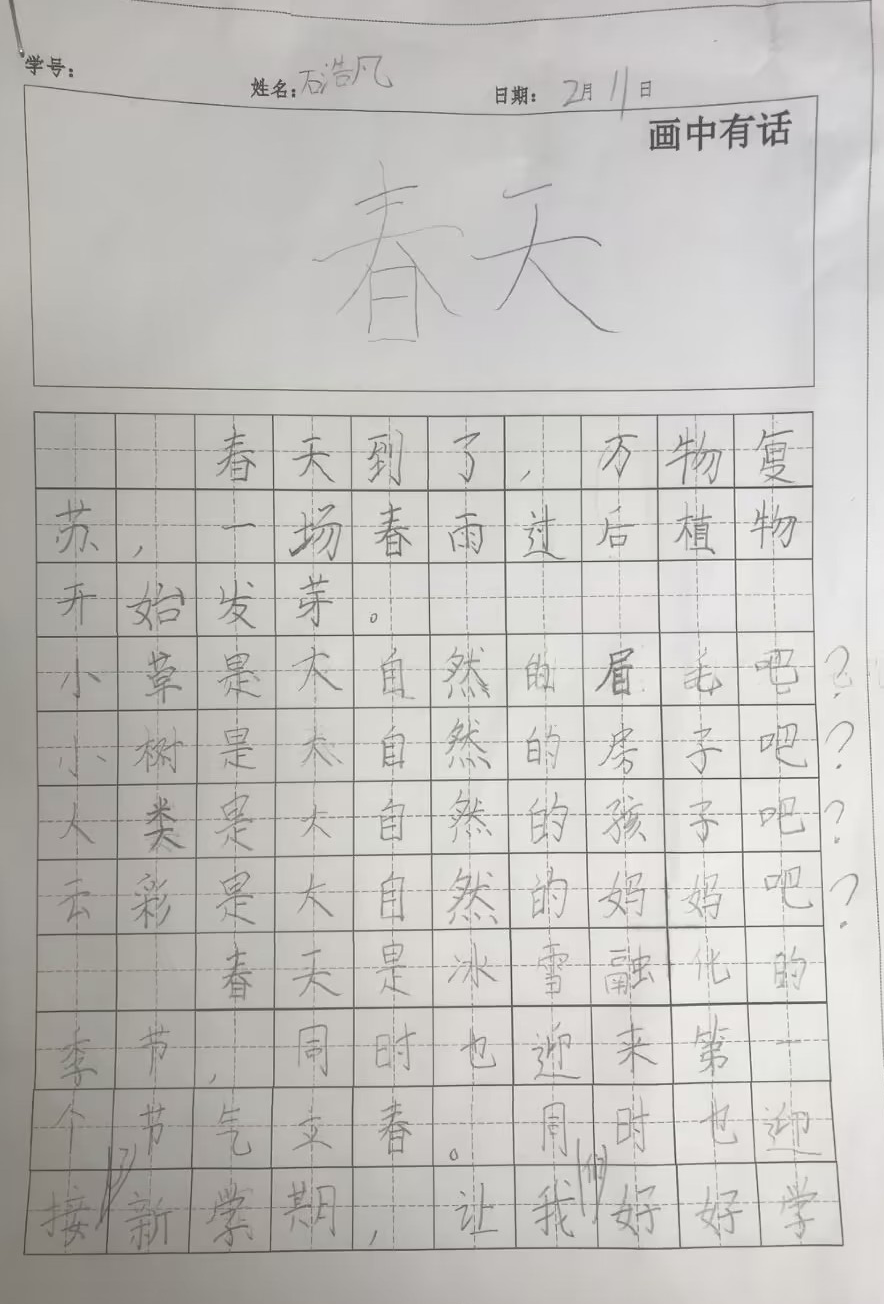 学号:
姓名:石浩凡
日期: 2月11日
画中有话
春天
春天到了,万物复
苏,一场春雨过后植物
开始发芽。
小草是大自然的眉毛吧?
小树是大自然的房子吧?
人类是大自然的孩子吧?
云彩是大自然的妈妈吧?
春天是冰雪融化的
季节,同时也迎来第一
个节气立春。同时也迎
接了新学期,让我们好好学